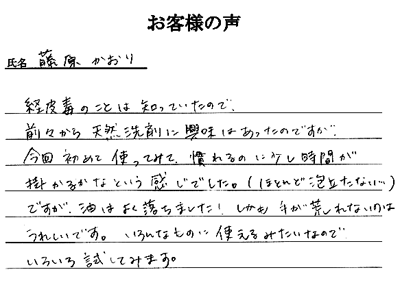 お客様の声
氏名 藤原 かおり
経皮毒のことは知っていたので、
前々から天然洗剤に興味はあったのですが、
今回初めて使ってみて、慣れるのに少し時間が
掛かるかなという感じでした。(ほとんど泡立たない…)
ですが、油はよく落ちました！しかも手が荒れないのは
うれしいです。いろんなものに使えるみたいなので
いろいろ試してみます。